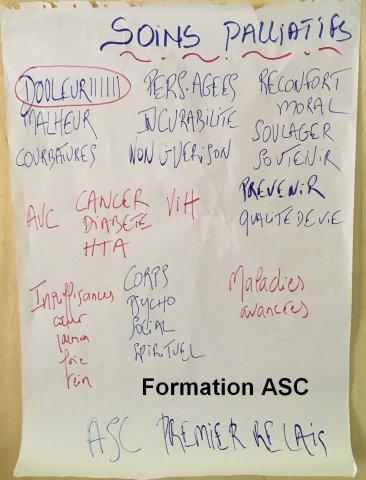 SOINS PALLIATIFS
DOULEUR!!!!!!
MALHEUR
COURBATURES
PERS. AGEES
INCURABILITE
NON GUERISON
RECONFORT
MORAL
SOULAGER
SOUTENIR
PREVENIR
QUALITE DE VIE
AVC
CANCER
DIABETE
HTA
VIH
Insuffisances
cœur
poumon
foie
rein
CORPS
PSYCHO
SOCIAL
SPIRITUEL
Maladies
avancées
Formation ASC
ASC PREMIER RELAIS